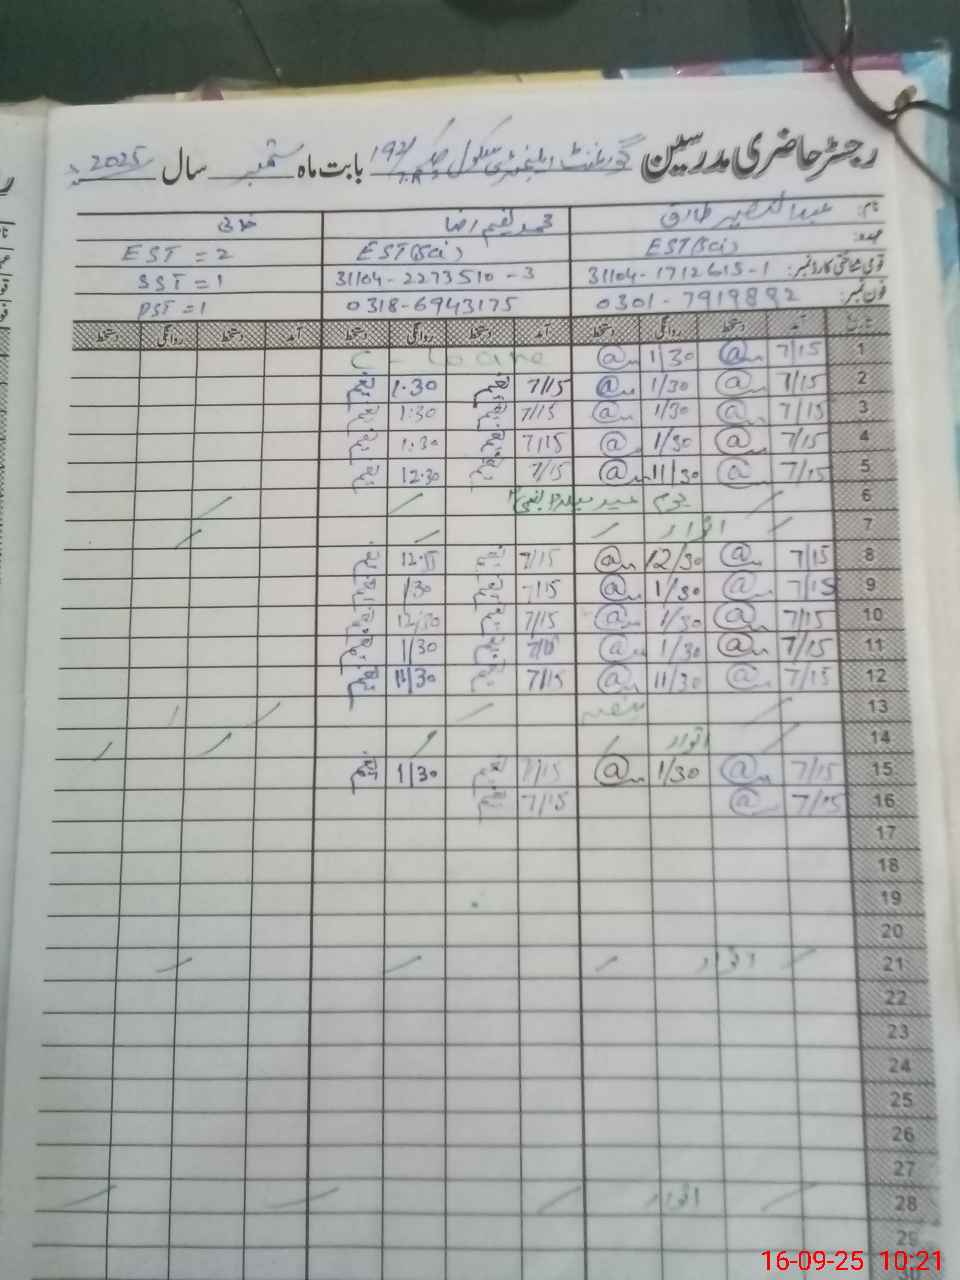 رجسٹر حاضری مدرسین گورنمنٹ ایلیمنٹری سکول چک 192/7.R بابت ماہ ستمبر سال 2025
نام: عبدالنصیر طارق محمد نعیم رضا خالی
عہدہ: EST(Sci) EST(Sci) EST = 2
قومی شناختی کارڈ نمبر: 31104-1712615-1 31104-2273510-3 SST = 1
فون نمبر: 0301-7919892 0318-6943175 PST = 1
تاریخ آمد دستخط روانگی دستخط آمد دستخط روانگی دستخط آمد دستخط روانگی دستخط
1 7/15 1/30
2 7/15 1/30 7/15 1.30
3 7/15 1/30 7/15 1:30
4 7/15 1/30 7/15 1:30
5 7/15 11/30 7/15 12.30
6 یوم عید میلاد النبی
7 اتوار
8 7/15 12/30 7/15
9 7/15 1/30 7/15 1/30
10 7/15 1/30 7/15 12/30
11 7/15 1/30 7/15 1/30
12 7/15 11/30 7/15 11/30
13 ہفتہ
14 اتوار
15 7/15 1/30 7/15 1/30
16 7/15 7/15
17
18
19
20
21 اتوار
22
23
24
25
26
27
28 اتوار
29
16-09-25 10:21